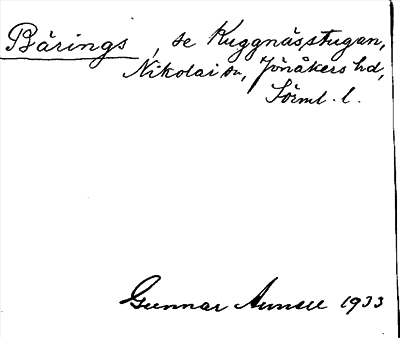 Bärings, se Kuggnässtugan,
Nikolai sn, Jönåkers hd,
Sörml. l.
Gunnar 1933